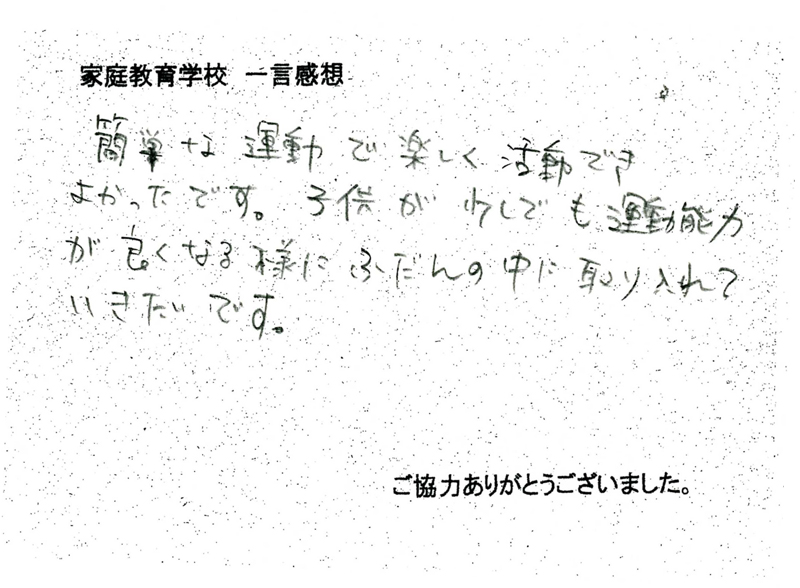 家庭教育学校 一言感想
簡単な運動で楽しく活動でき
よかったです。子供が少しでも運動能力
が良くなる様にふだんの中に取り入れて
いきたいです。
ご協力ありがとうございました。